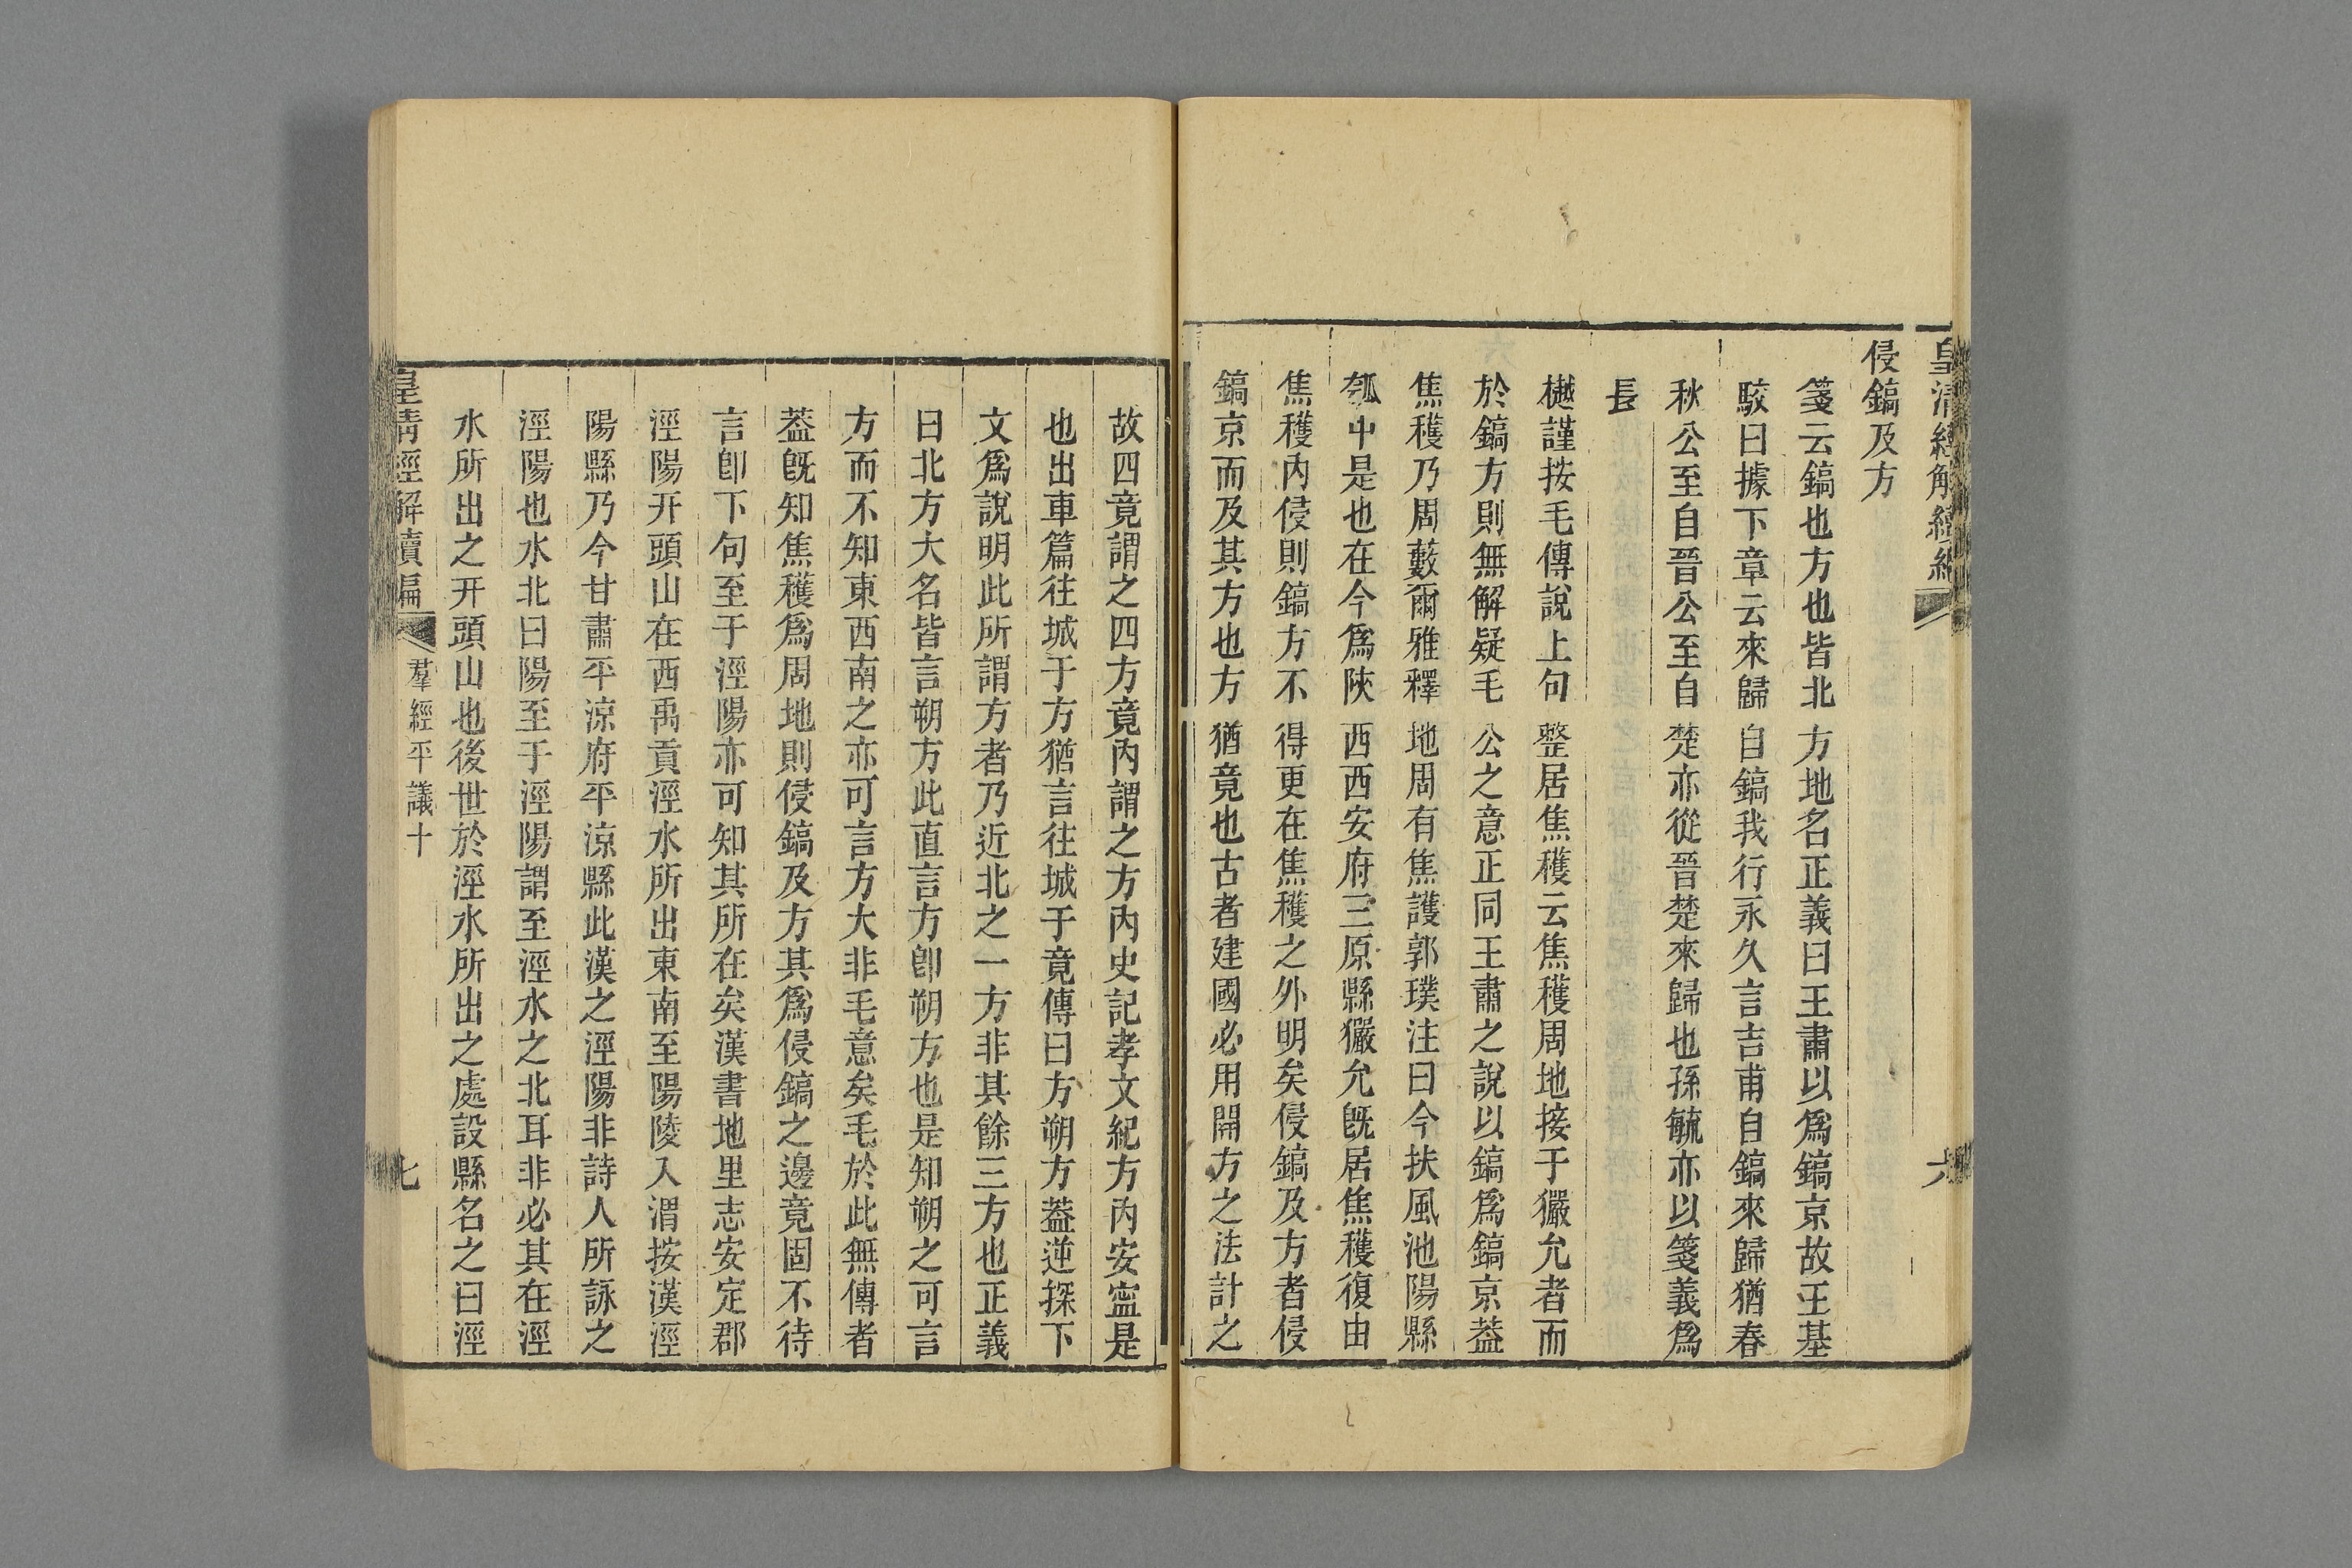 皇清經解續編
六
侵鎬及方
箋云鎬也方也皆北方地名正義曰王肅以爲鎬京故王基
駮曰據下章云來歸自鎬我行永久言吉甫自鎬來歸猶春
秋公至自晉公至自楚亦從晉楚來歸也孫毓亦以箋義爲
長
樾謹按毛傳說上句整居焦穫云焦穫周地接于玁允者而
於鎬方則無解疑毛公之意正同王肅之說以鎬爲鎬京葢
焦穫乃周藪爾雅釋地周有焦護郭璞注曰今扶風池陽縣
瓠中是也在今爲陝西西安府三原縣玁允旣居焦穫復由
焦穫內侵則鎬方不得更在焦穫之外明矣侵鎬及方者侵
鎬京而及其方也方猶竟也古者建國必用開方之法計之
故四竟謂之四方竟內謂之方內史記孝文紀方內安寍是
也出車篇往城于方猶言往城于竟傳曰方朔方葢逆探下
文爲說明此所謂方者乃近北之一方非其餘三方也正義
曰北方大名皆言朔方此直言方卽朔方也是知朔之可言
方而不知東西南之亦可言方大非毛意矣毛於此無傳者
葢旣知焦穫爲周地則侵鎬及方其爲侵鎬之邊竟固不待
言卽下句至于涇陽亦可知其所在矣漢書地里志安定郡
涇陽幵頭山在西禹貢涇水所出東南至陽陵入渭按漢涇
陽縣乃今甘肅平涼府平涼縣此漢之涇陽非詩人所詠之
涇陽也水北曰陽至于涇陽謂至涇水之北耳非必其在涇
水所出之幵頭山也後世於涇水所出之處設縣名之曰涇
皇清經解續編
羣經平議十
七